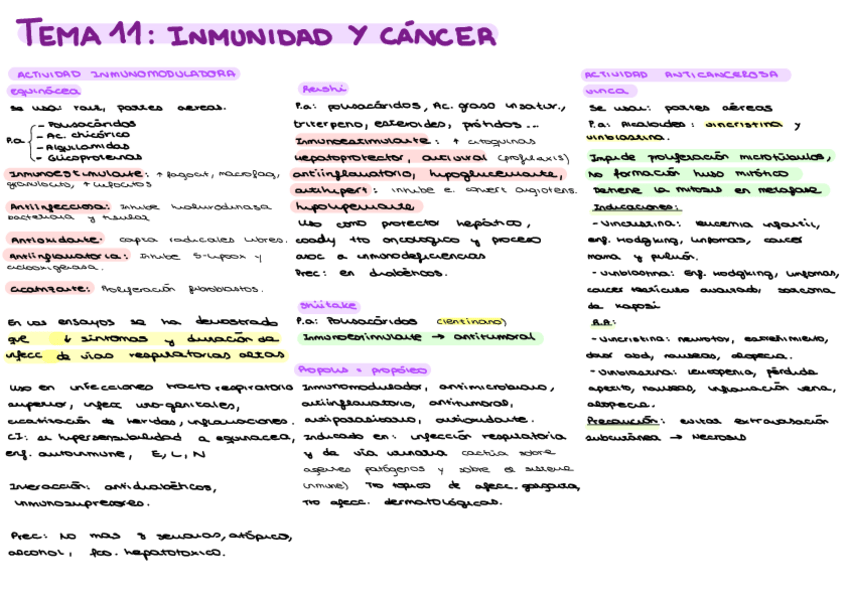 TEMA 11: INMUNIDAD Y CÁNCER
ACTIVIDAD INMUNOMODULADORA
equinácea
Se usa: raíz, partes aéreas.
P.a
- Polisacáridos
- Ac. chicórico
- Alquilamidas
- Glicoproteínas
Inmunoestimulante: ↑ fagocit, macrófag,
granulocito, ↑ linfocitos
Antiinfecciosa: Inhibe hialuronidasa
bacteriana y tisular
Antioxidante: capta radicales libres.
Antiinflamatoria: Inhibe 5-lipox y
ciclooxigenasa.
Cicatrizante: Proliferación fibroblastos.
En los ensayos se ha demostrado
que ↓ síntomas y duración de
infecc de vías respiratorias altas
Uso en infecciones tracto respiratorio
superior, infecc uro-genitales,
cicatrización de heridas, inflamaciones.
CI: si hipersensibilidad a equinacea,
enf. autoinmune, E, L, N
Interacción: antidiabéticos,
inmunosupresores.
Prec: no mas 8 semanas, atópico,
alcohol, fco. hepatotóxico.
Reishi
P.a: polisacáridos, Ac. graso insatur.,
triterpeno, esteroides, prótidos...
Inmunoestimulante: ↑ citoquinas
hepatoprotector, antiviral (profilaxis)
antiinflamatorio, hipoglucemiante,
antihipert: inhibe e. convert angiotens.
hipolipemiante
Uso como protector hepático,
coady tto oncológico y proceso
asoc a inmunodeficiencias
Prec: en diabéticos.
Shiitake
P.a: Polisacáridos (lentinano)
Inmunoestimulante → antitumoral
Propolis = propóleo
Inmunomodulador, antimicrobiano,
antiinflamatorio, antitumoral,
antiparasitario, antioxidante.
Indicado en: infección respiratoria
y de vía urinaria (actúa sobre
agentes patógenos y sobre el sistema
inmune) Tto tópico de afecc. garganta,
Tto afecc. dermatológicas.
ACTIVIDAD ANTICANCEROSA
Vinca
Se usan: partes aéreas
P.a: Alcaloides: vincristina y
vinblastina.
Impide proliferación microtúbulos,
no formación huso mitótico
Detiene la mitosis en metafase
Indicaciones:
- Vincristina: leucemia infantil,
enf. Hodgking, linfomas, cancer
mama y pulmón.
- Vinblastina: enf. Hodgking, linfomas,
cancer testículo avanzado, sarcoma
de Kaposi
R.A:
- Vincristina: neurotox, estreñimiento,
dolor abd, nauseas, alopecia.
- Vinblastina: leucopenia, pérdida
apetito, nauseas, inflamación vena,
alopecia.
Precaución: evitar extravasación
subcutánea → Necrosis